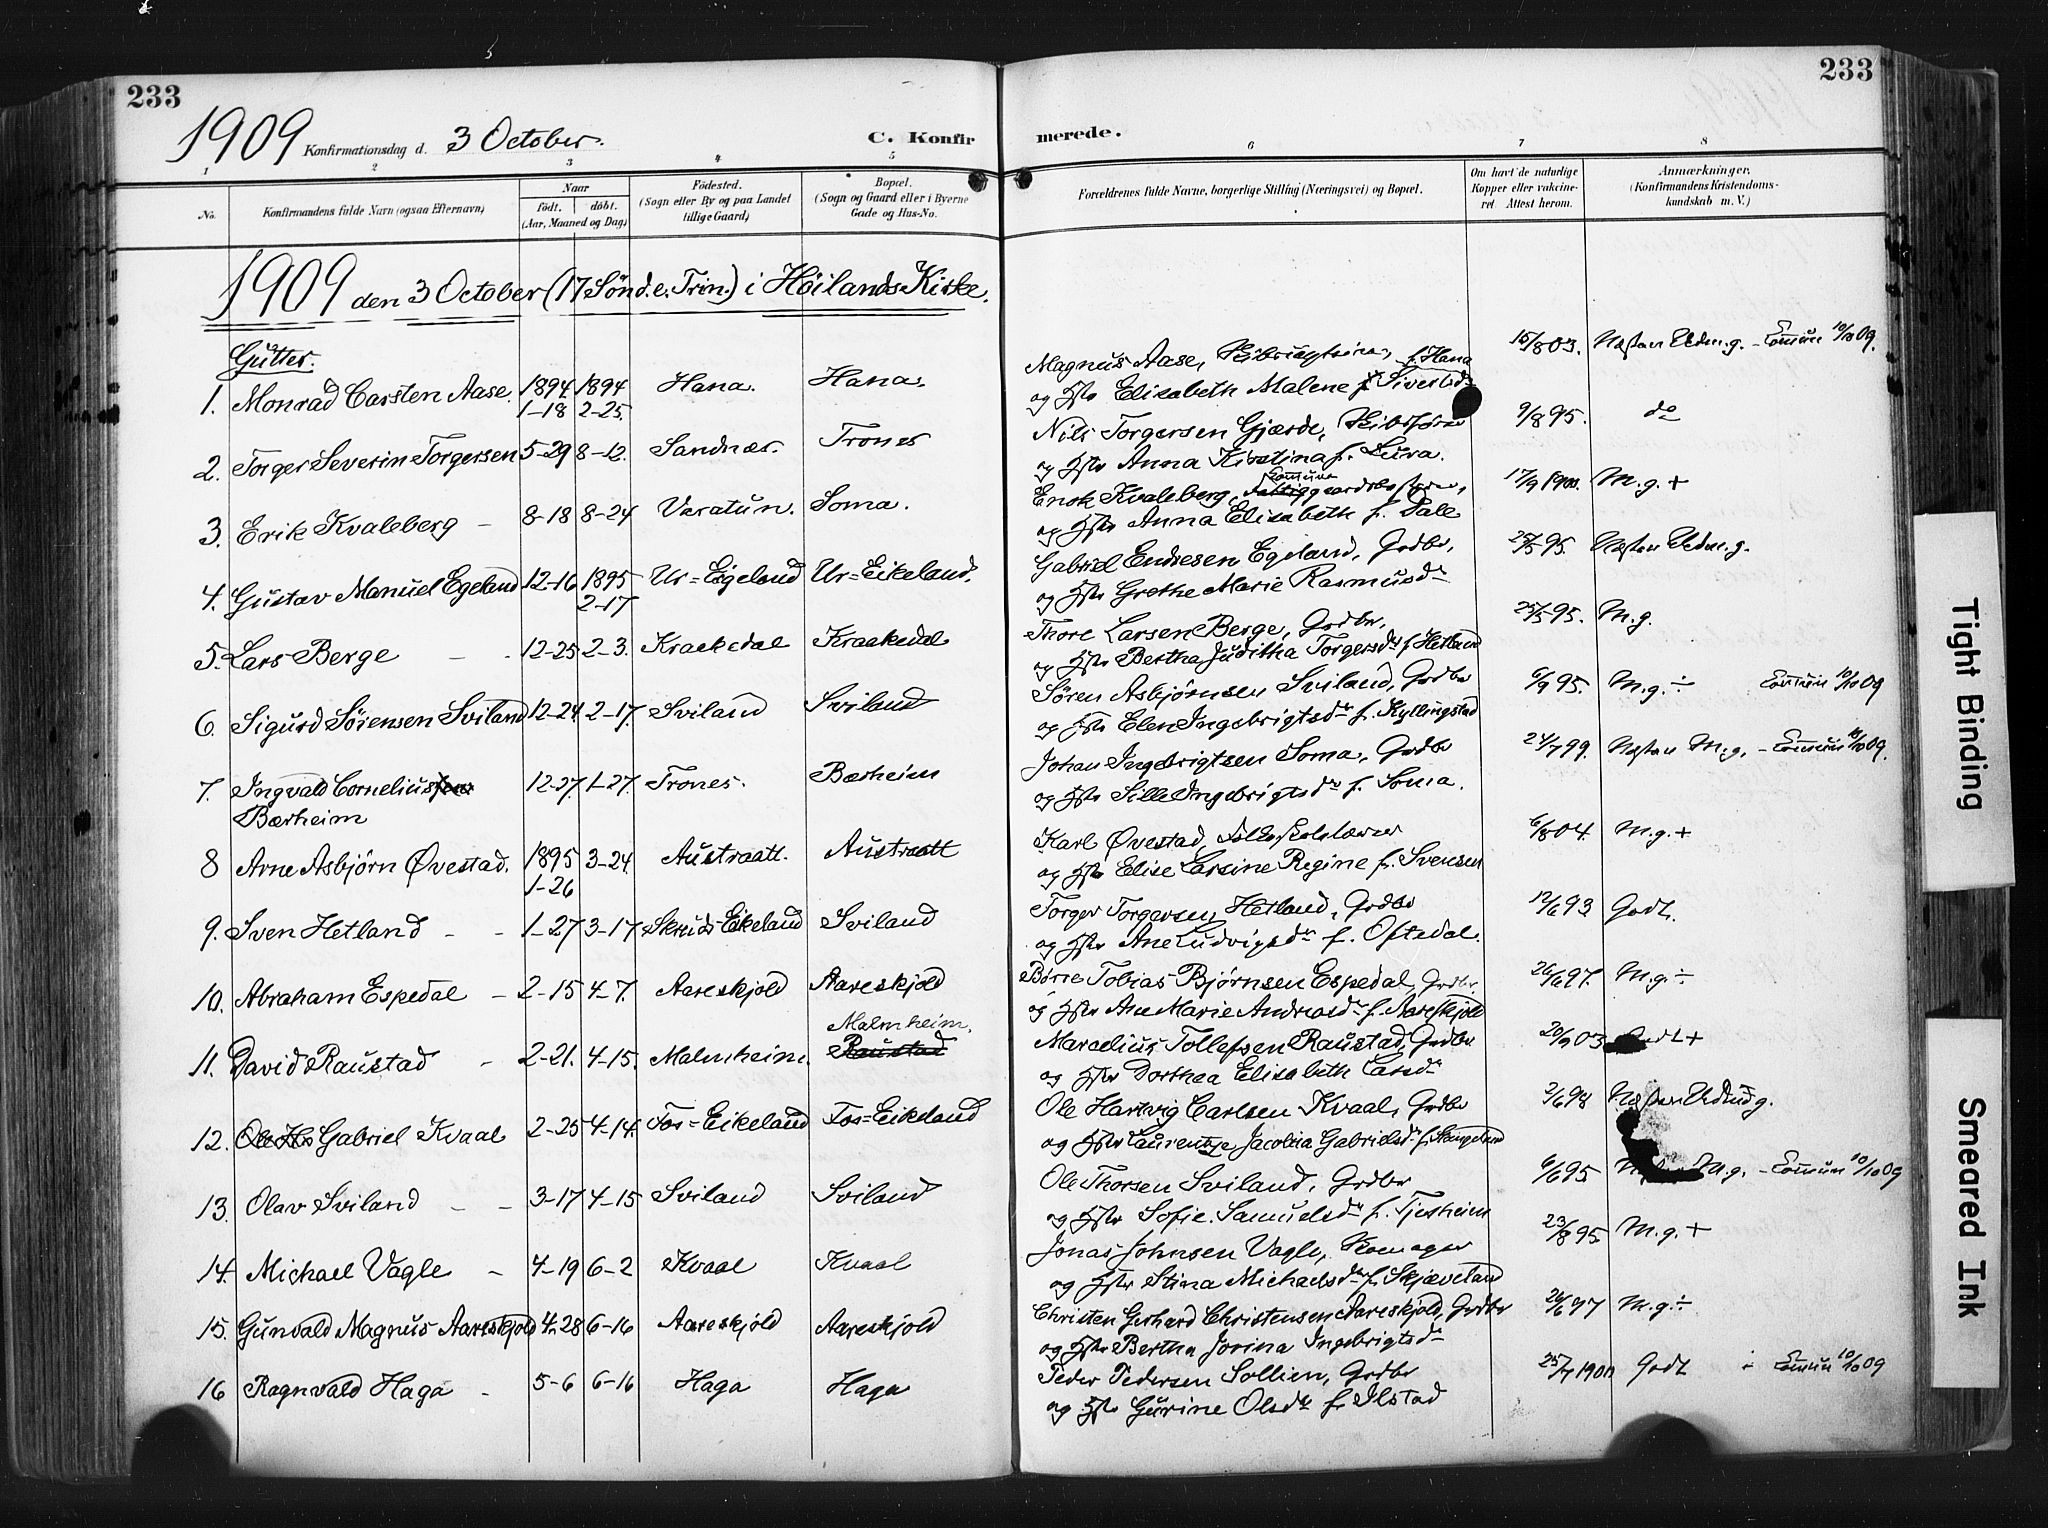 233
233
1909 Konfirmationsdag d. 3 October.
C. Konfir
merede.
1 2 3 4 5 6 7 8
No.
Konfirmandens fulde Navn (ogsaa Efternavn)
Naar
födt. döbt.
(Aar, Maaned og Dag)
Födested.
(Sogn eller By og paa Landet
tillige Gaard)
Bopæl.
(Sogn og Gaard eller i Byerne
Gade og Hus-No.
Forældrenes fulde Navne, borgerlige Stilling (Næringsvei) og Bopæl.
Om havt de naturlige
Kopper eller vaccine-
ret. Attest herom.
Anmærkninger.
(Konfirmandens Kristendoms-
kundskab m. V.)
1909 den 3 October (17 Sönd. e. Trin.) i Höilands Kirke.
Gutter.
1. Monrad Carsten Aase. 1894 1-18 1894 2-25. Hana. Hana. Magnus Aase, f. Hana
og Hstr Elisabeth Malene f. Sivertsdr 15/8 03. Næsten Udm.g. - Commun 10/10 09.
2. Torger Severin Torgersen 5-29 8-12. Sandnæs. Trones Nils Torgersen Gjærde,
og Hstr Anna Kirstina f. Lura. 9/8 95. do
3. Erik Kvaleberg - 8-18 8-24 Varatun. Soma. Enok Kvaleberg,
og Hstr Anna Elisabeth f. Dale 17/9 1900. M.g.+
4. Gustav Manuel Egeland 12-16 1895 2-17 Ur=Eigeland Ur=Eikeland. Gabriel Endresen Egeland, Grdbr,
og Hstr Grethe Marie Rasmusdr 25/5 95. Næsten Udm.g.
5. Lars Berge - - 12-25 2-3. Kraakedal Kraakedal Thore Larsen Berge, Grdbr,
og Hstr Bertha Juditha Torgersdr f. Hetland 25/5 95. M.g.
6. Sigurd Sørensen Sviland 12-24 2-17. Sviland Sviland Søren Asbjørnsen Sviland, Grdbr
og Hstr Elen Ingebrigtsdr f. Kyllingstad 6/9 95. M.g. ÷ Commun 10/10 09
7. Ingvald Cornelius 12-27. 1-27. Trones. Bærheim Johan Ingebrigtsen Soma, Grdbr
Bærheim og Hstr Sille Ingebrigtsdr f. Soma. 24/7 99. Næsten M.g. - Commun 10/10 09.
8 Arne Asbjörn Øvestad. 1895 1-26 3-24. Austraatt. Austraatt Karl Øvestad, Folkeskolelærer
og Hstr Elise Larsine Regine f. Svensen 6/8 04. M.g.+
9. Sven Hetland - - 1-27 3-17 Skrüds-Eikeland Sviland Torger Torgersen Hetland, Grdbr
og Hstr Ane Ludvigsdr f. Oftedal. 12/6 93 Godt.
10. Abraham Espedal - 2-15 4-7. Aareskjold Aareskjold Børre Tobias Bjørnsen Espedal, Grdbr.
og Hstr Ane Marie Andreasdr f. Aareskjold 26/6 97. M.g ÷
11. David Raustad - 2-21. 4-15. Malmheim. Malmheim. Raustad Marcelius Tollefsen Raustad, Grdbr
og Hstr Dorthea Elisabeth Larsdr 20/9 03 Godt +
12. Gabriel Kvaal 2-25 4-14. Fos=Eikeland Fos=Eikeland Ole Hartvig Carlsen Kvaal, Grdbr
og Hstr Jacobia Gabrielsdr 2/6 98 Næsten Udm g.
13. Olav Sviland - - 3-17 4-15 Sviland Sviland Ole Thorsen Sviland, Grdbr
og Hstr Sofie Samuelsdr f. Tjesheim 6/6 95 M.g. - Commun 10/10 09
14. Michael Vagle - 4-19 6-2 Kvaal Kvaal Jonas Johnsen Vagle, Skomager
og Hstr Stina Michaelsdr f. Skjæveland 23/8 95. M.g.+
15. Gunvald Magnus Aareskjold 4-28 6-16 Aareskjold Aareskjold Christen Gerhard Christensen Aareskjold, Grdbr
og Hstr Bertha Jorina Ingebrigtsdr 26/6 97 M.g ÷
16 Ragnvald Haga - 5-6 6-16 Haga Haga Peder Pedersen Sollien, Grdbr
og Hstr Gurine Olsdr f. Ilstad 25/7 1900 Godt Commun 10/10 09
Tight Binding
Smeared Ink